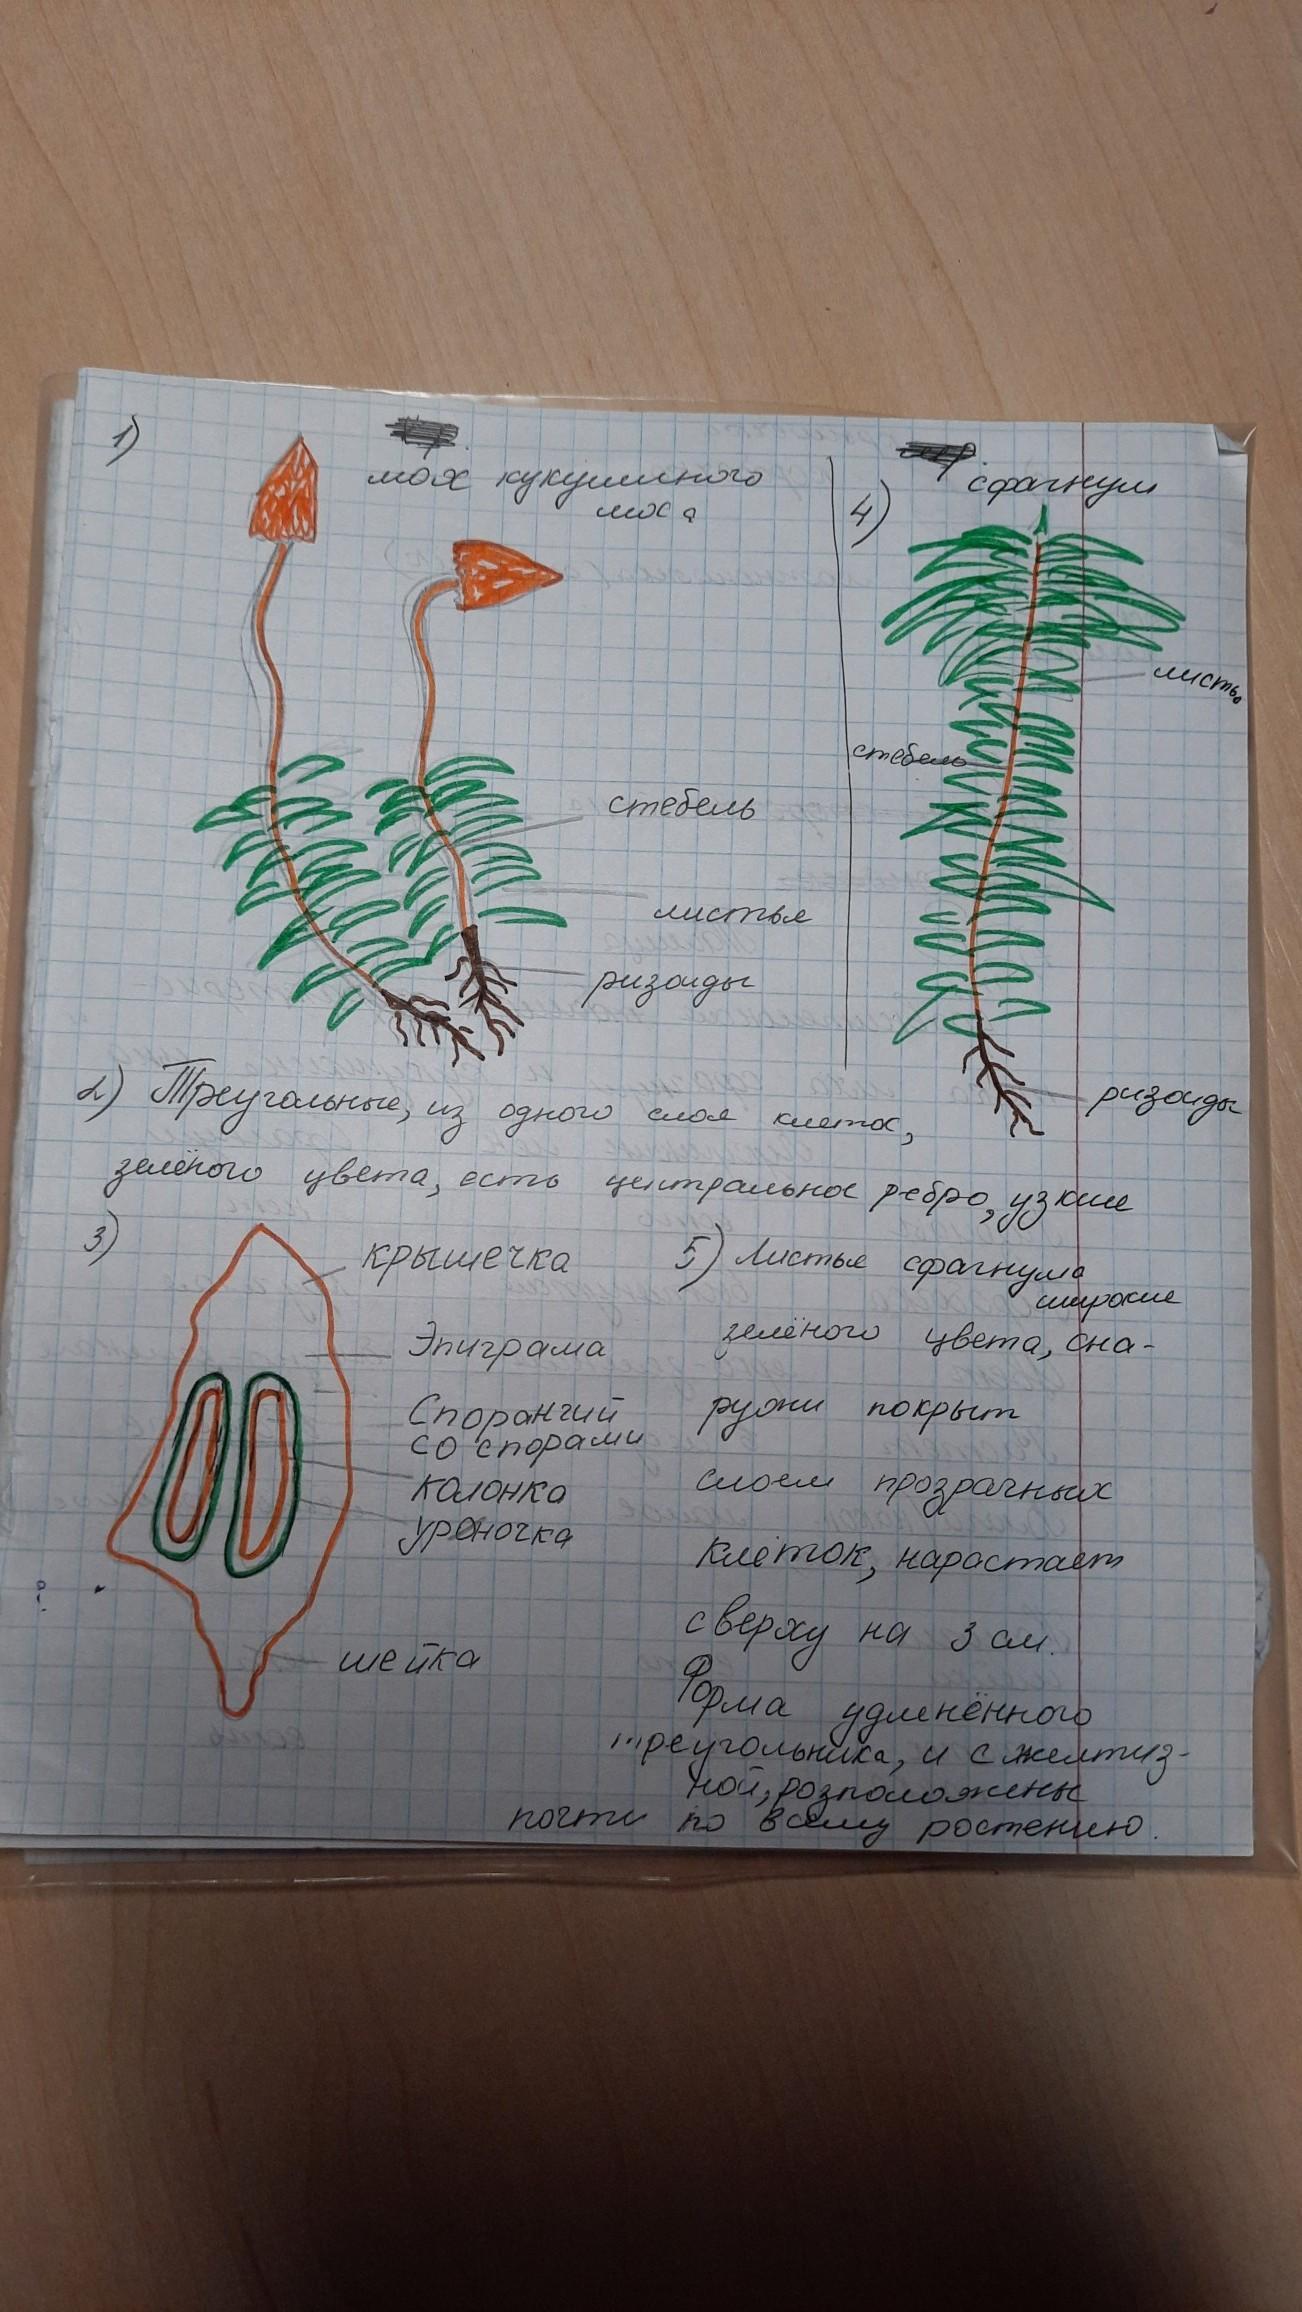 1)
мох кукушкиного
моха
стебель
листья
ризоиды
4)
сфагнум
листья
стебель
ризоиды
2) Треугольные, из одного слоя клеток,
зелёного цвета, есть центральное ребро, узкие
3)
крышечка
Эпиграма
Спорангий
со спорами
колонка
уреночка
шейка
5) Листья сфагнума
широкие
зелёного цвета, сна-
ружи покрыт
слоем прозрачных
клеток, нарастает
сверху на 3 см.
Форма удленённого
треугольника, и с желтиз-
ной, розположены
почти по всему ростению.